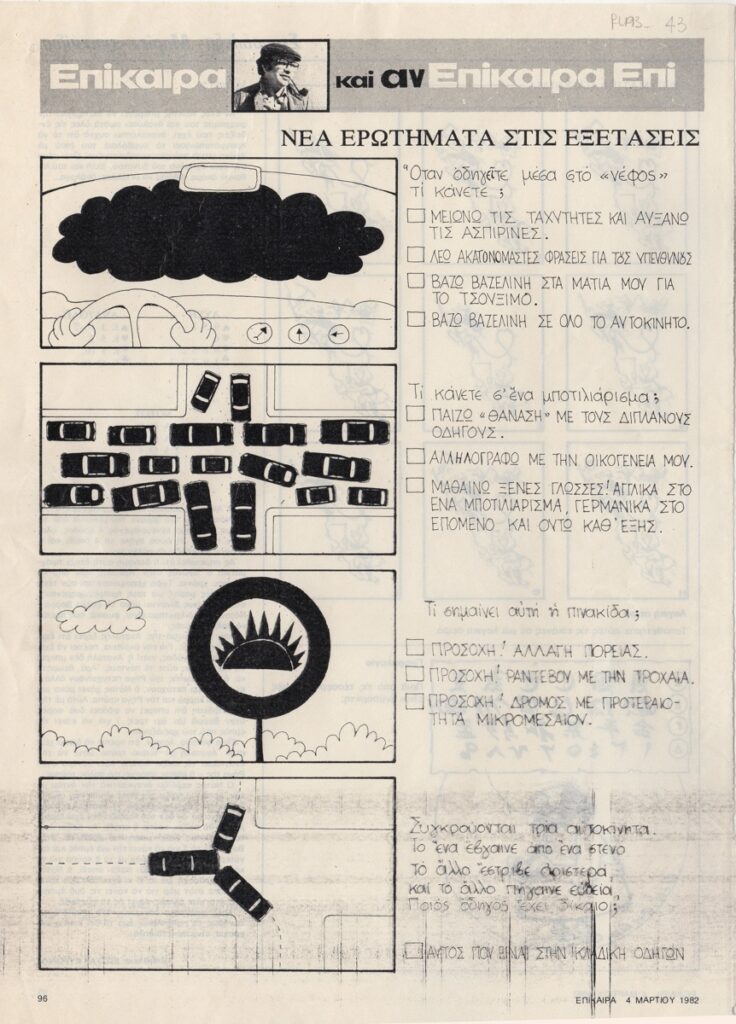 PLI93_ 43
Επίκαιρα και αν Επίκαιρα Επί
ΝΕΑ ΕΡΩΤΗΜΑΤΑ ΣΤΙΣ ΕΞΕΤΑΣΕΙΣ
Ὅταν ὁδηγεῖτε μέσα στό «νέφος»
τί κάνετε ;
ΜΕΙΩΝΩ ΤΙΣ ΤΑΧΥΤΗΤΕΣ ΚΑΙ ΑΥΞΑΝΩ
ΤΙΣ ΑΣΠΙΡΙΝΕΣ.
ΛΕΩ ΑΚΑΤΟΝΟΜΑΣΤΕΣ ΦΡΑΣΕΙΣ ΓΙΑ ΤΟΥΣ ΥΠΕΥΘΥΝΟΥΣ
ΒΑΖΩ ΒΑΖΕΛΙΝΗ ΣΤΑ ΜΑΤΙΑ ΜΟΥ ΓΙΑ
ΤΟ ΤΣΟΥΞΙΜΟ.
ΒΑΖΩ ΒΑΖΕΛΙΝΗ ΣΕ ΟΛΟ ΤΟ ΑΥΤΟΚΙΝΗΤΟ.
Τί κάνετε σ' ἕνα μποτιλιάρισμα ;
ΠΑΙΖΩ «ΘΑΝΑΣΗ» ΜΕ ΤΟΥΣ ΔΙΠΛΑΝΟΥΣ
ΟΔΗΓΟΥΣ.
ΑΛΛΗΛΟΓΡΑΦΩ ΜΕ ΤΗΝ ΟΙΚΟΓΕΝΕΙΑ ΜΟΥ.
ΜΑΘΑΙΝΩ ΞΕΝΕΣ ΓΛΩΣΣΕΣ! ΑΓΛΙΚΑ ΣΤΟ
ΕΝΑ ΜΠΟΤΙΛΙΑΡΙΣΜΑ, ΓΕΡΜΑΝΙΚΑ ΣΤΟ
ΕΠΟΜΕΝΟ ΚΑΙ ΟΥΤΩ ΚΑΘ' ΕΞΗΣ.
Τί σημαίνει αὐτή ἡ πινακίδα ;
ΠΡΟΣΟΧΗ! ΑΛΛΑΓΗ ΠΟΡΕΙΑΣ.
ΠΡΟΣΟΧΗ! ΡΑΝΤΕΒΟΥ ΜΕ ΤΗΝ ΤΡΟΧΑΙΑ.
ΠΡΟΣΟΧΗ! ΔΡΟΜΟΣ ΜΕ ΠΡΟΤΕΡΑΙΟ-
ΤΗΤΑ ΜΙΚΡΟΜΕΣΑΙΟΥ.
Συγκρούονται τρία αὐτοκίνητα.
Τό ἕνα ἔβγαινε ἀπό ἕνα στενό
Τό ἄλλο ἔστριβε ἀριστερά,
καί τό ἄλλο πήγαινε εὐθεία
Ποιός ὁδηγός ἔχει δίκαιο ;
ΑΥΤΟΣ ΠΟΥ ΕΙΝΑΙ ΣΤΗΝ ΚΛΑΔΙΚΗ ΟΔΗΓΩΝ
96
ΕΠΙΚΑΙΡΑ 4 ΜΑΡΤΙΟΥ 1982